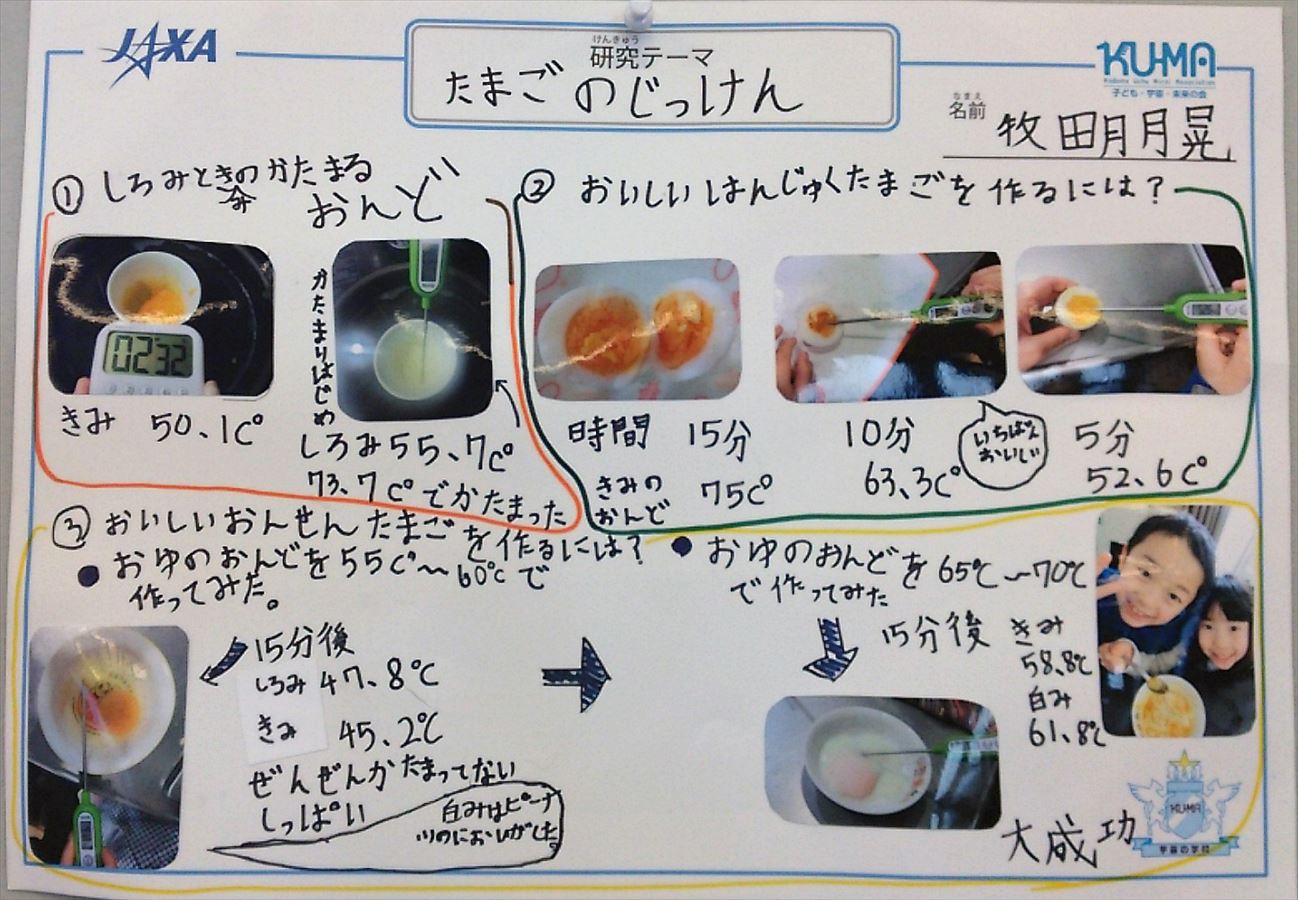 JAXA
けんきゅう
研究テーマ
たまごのじっけん
KU-MA
Kodomo Uchu Mirai Association
子ども・宇宙・未来の会
なまえ
名前
牧田月月晃
① しろみときのかたまる
おんど
02 32
きみ 50.1C°
かたまりはじめ
しろみ 55.7C°
73.7C°でかたまった
② おいしいはんじゅくたまごを作るには?
時間 15分 10分 5分
いちばん
おいしい
きみの
おんど 75C° 63.3C° 52.6C°
③ おいしいおんせんたまごを作るには?
● おゆのおんどを55C°~60°Cで
作ってみた。
15分後
しろみ 47.8℃
きみ 45.2℃
ぜんぜんかたまってない
しっぱい
白みはピーナ
ツのにおいがした。
● おゆのおんどを65℃~70℃
で作ってみた
15分後
きみ
58.8℃
白み
61.8℃
大成功
KUMA
宇宙の学校